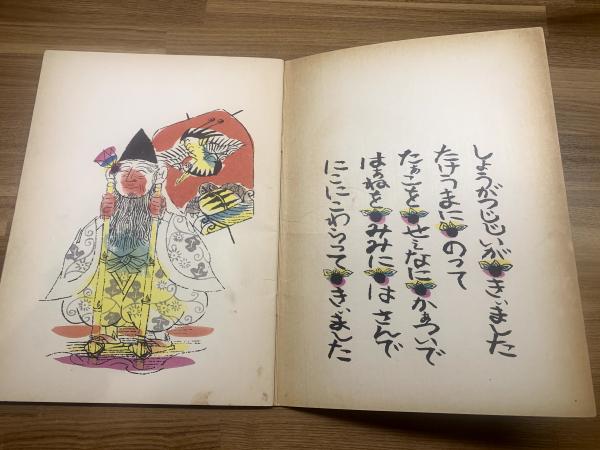 しょうがつじじいがきぃました
たけうまにのって
たぁこをせぇなにかぁついで
はぁねをみみにはさんで
にこにこわらってきぃました